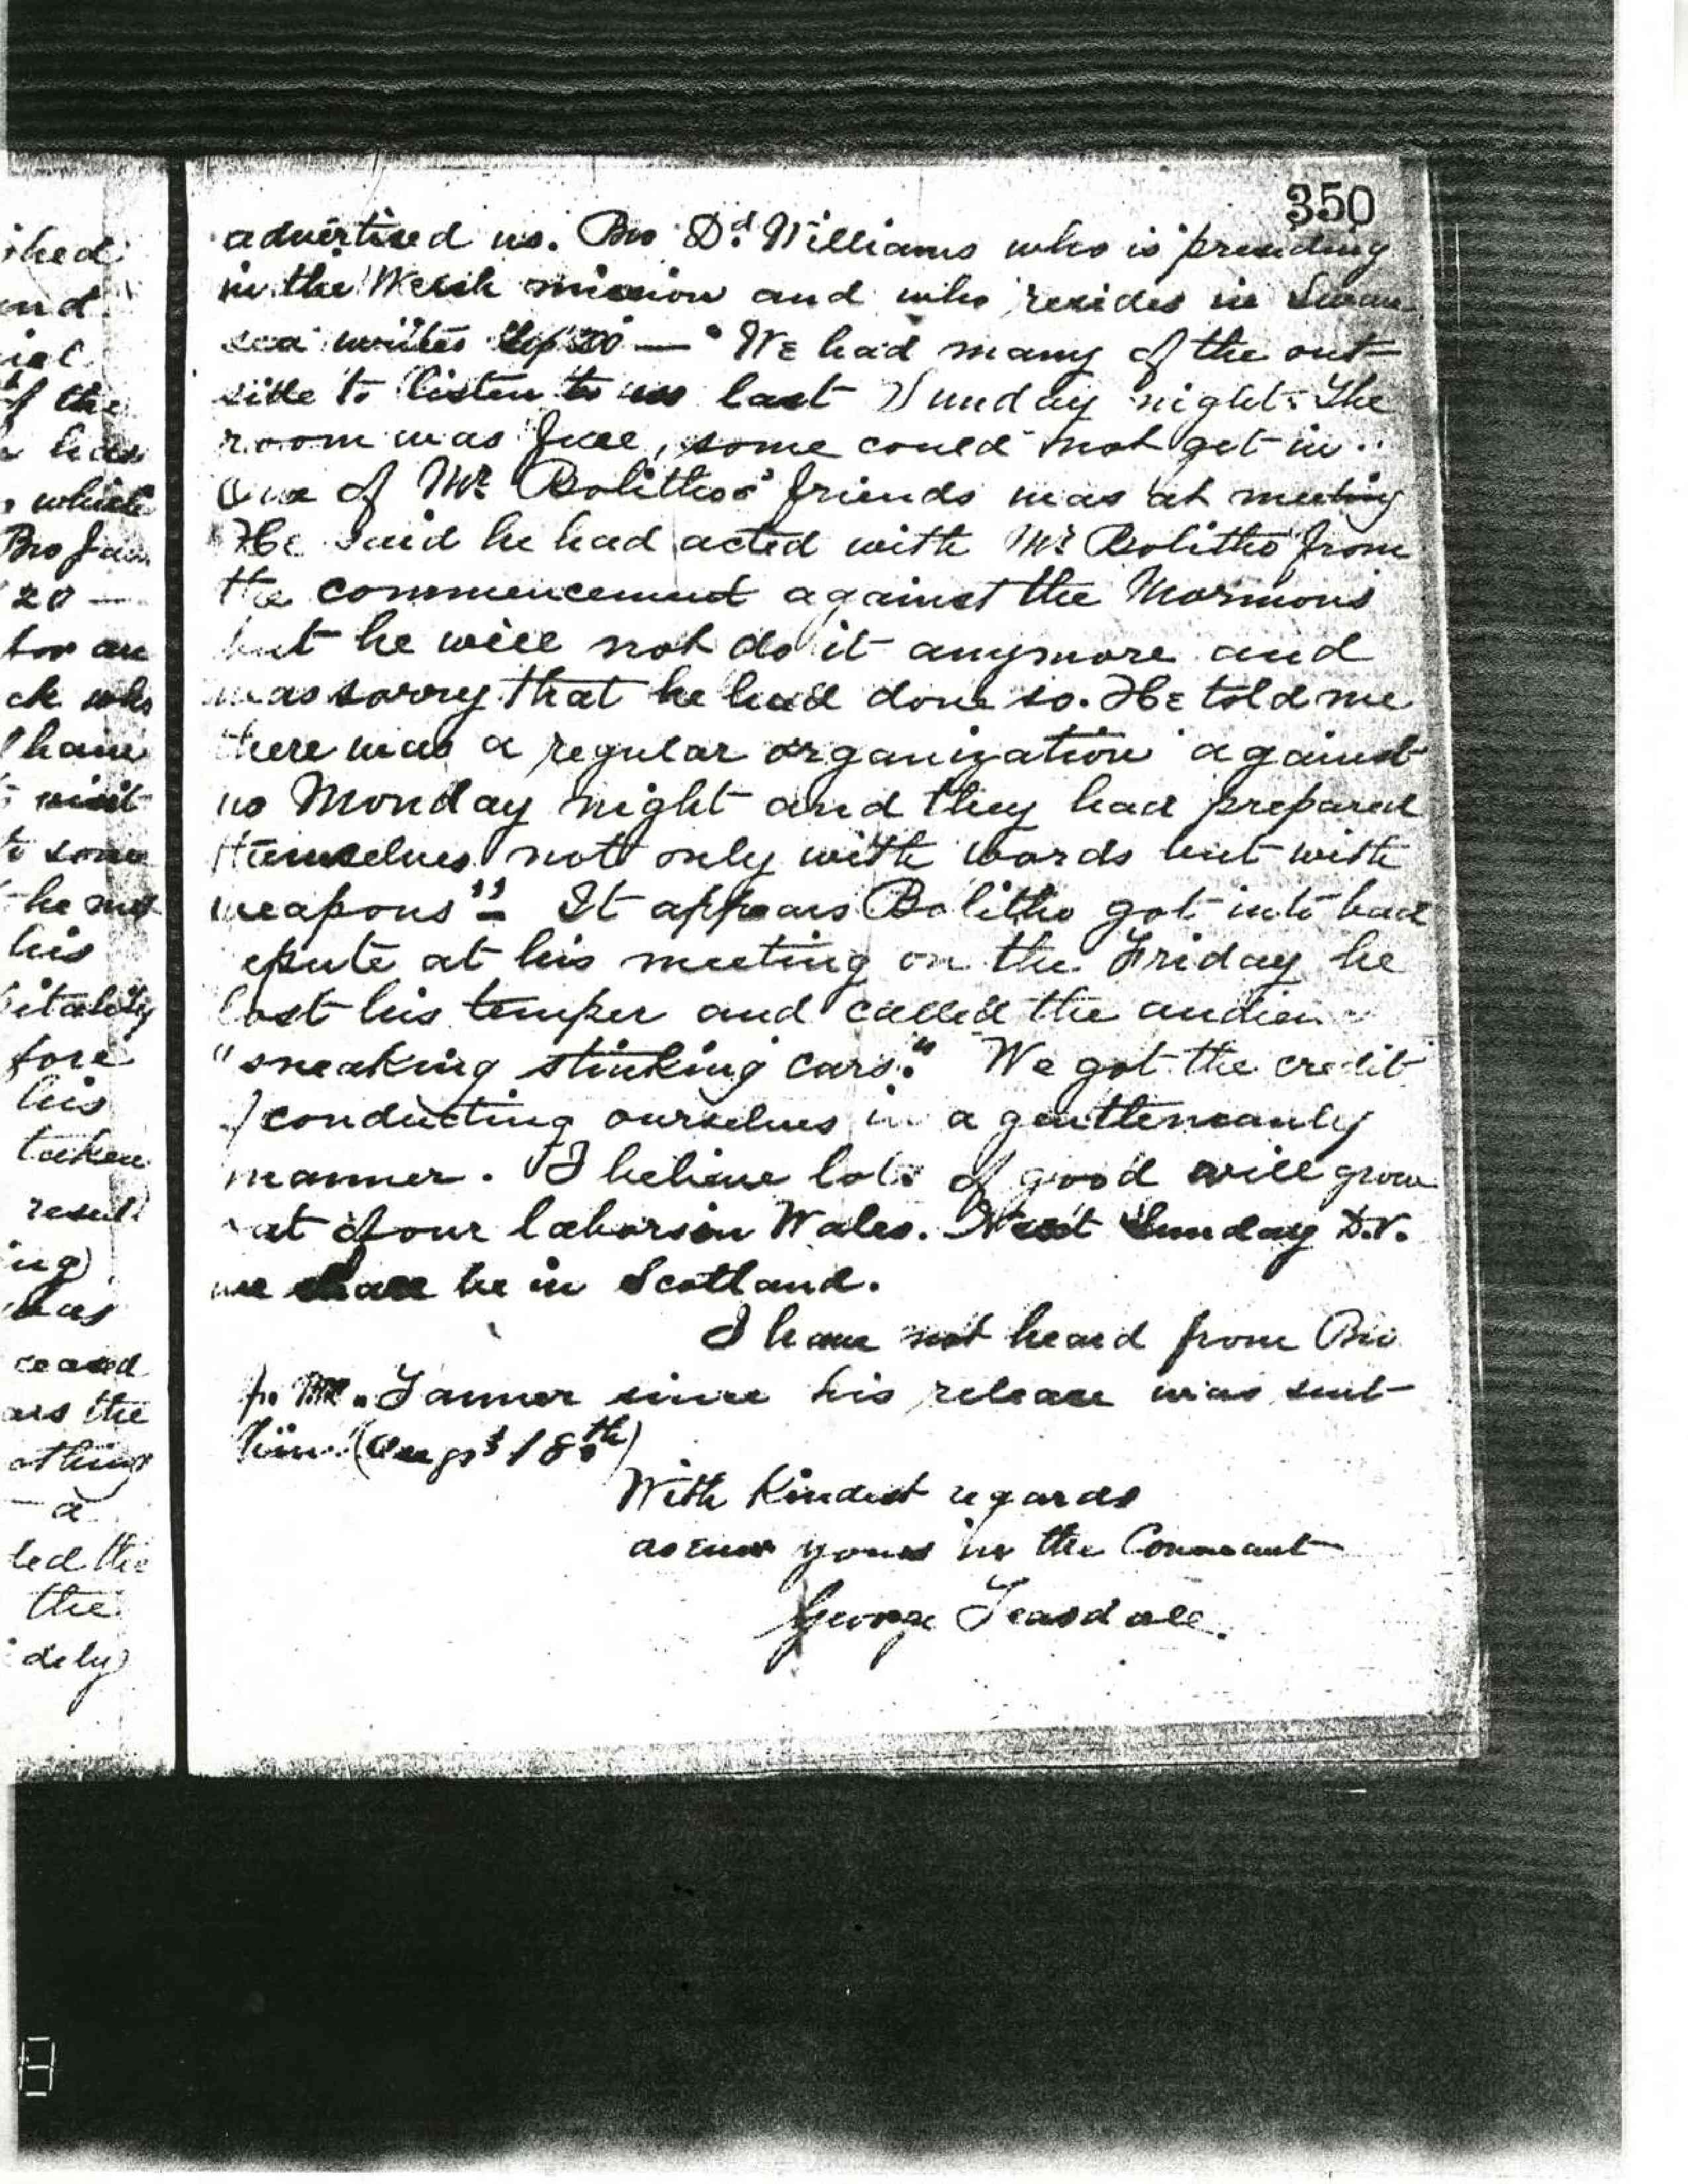 350
advertised us. Bro Dd. Williams who is presiding
in the Welsh mission and who resides in Swan
sea writes Sep 20 — "We had many of the out
side to listen to us last Sunday night. The
room was full, some could not get in.
One of Mr Bolitho's friends was at meeting
He said he had acted with Mr Bolitho from
the commencement against the Mormons
but he will not do it anymore and
was sorry that he had done so. He told me
there was a regular organization against
us Monday night and they had prepared
themselves not only with words but with
weapons" - It appears Bolitho got into bad
epute at his meeting on the Friday he
lost his temper and called the audienc
"sneaking stinking curs." We got the credit
of conducting ourselves in a gentlemanly
manner. I believe lots of good will grow
out of our labors in Wales. Next Sunday D.V.
we shall be in Scotland.
I have not heard from Bro
J. M. Tanner since his release was sent
him. (Augst 18th)
With Kindest regards
as ever yours in the Covenant
George Teasdale.
ished
end
ial
of the
has
which
Bro Jas.
20 —
for an
ck who
I have
visit
to some
he met
his
pitality
fore
his
taken
result
ing
was
ceased
ars the
othing
— a
led the
the
dely